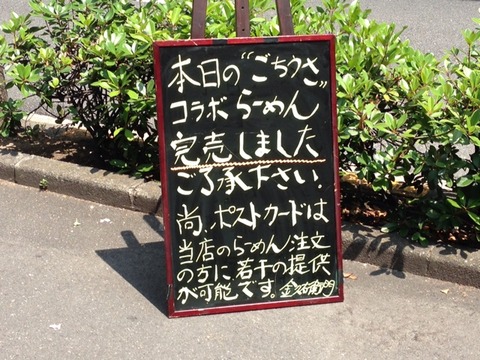 本日の"ごちうさ"
コラボらーめん
完売しました
ご了承下さい.
尚、ポストカードは
当店のらーめん注文
の方に若干の提供
が可能です。金右衛門